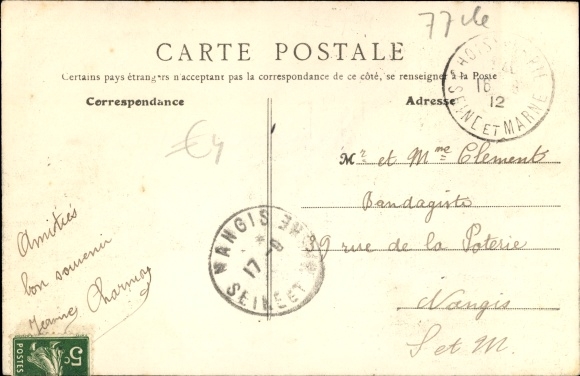 77
CARTE POSTALE
Certains pays étrangers n'acceptant pas la correspondance de ce côté, se renseigner à la Poste
Correspondance
Adresse
16
12
SEINE ET MARNE
€4
Mr et Mme Clements
Bandagiste
39 rue de la Poterie
Nangis
S et M.
NANGIS
17-9
SEINE ET MARNE
Amitiés
bon souvenir
Charmoy
5c
POSTES